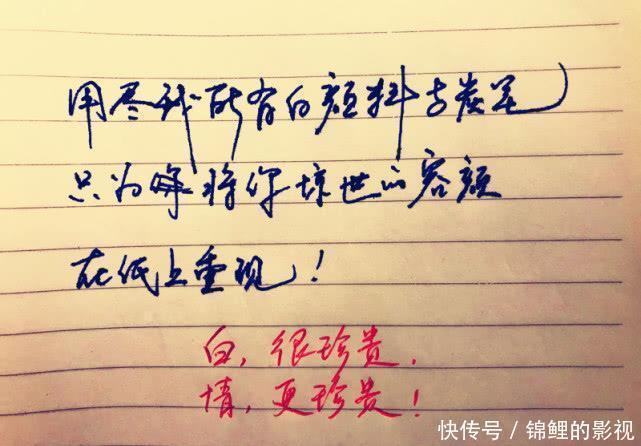 用尽我所有的颜料与炭笔
只为将你惊世的容颜
在纸上重现！
白，很珍贵，
情，更珍贵！
快传号 / 锦鲤的影视